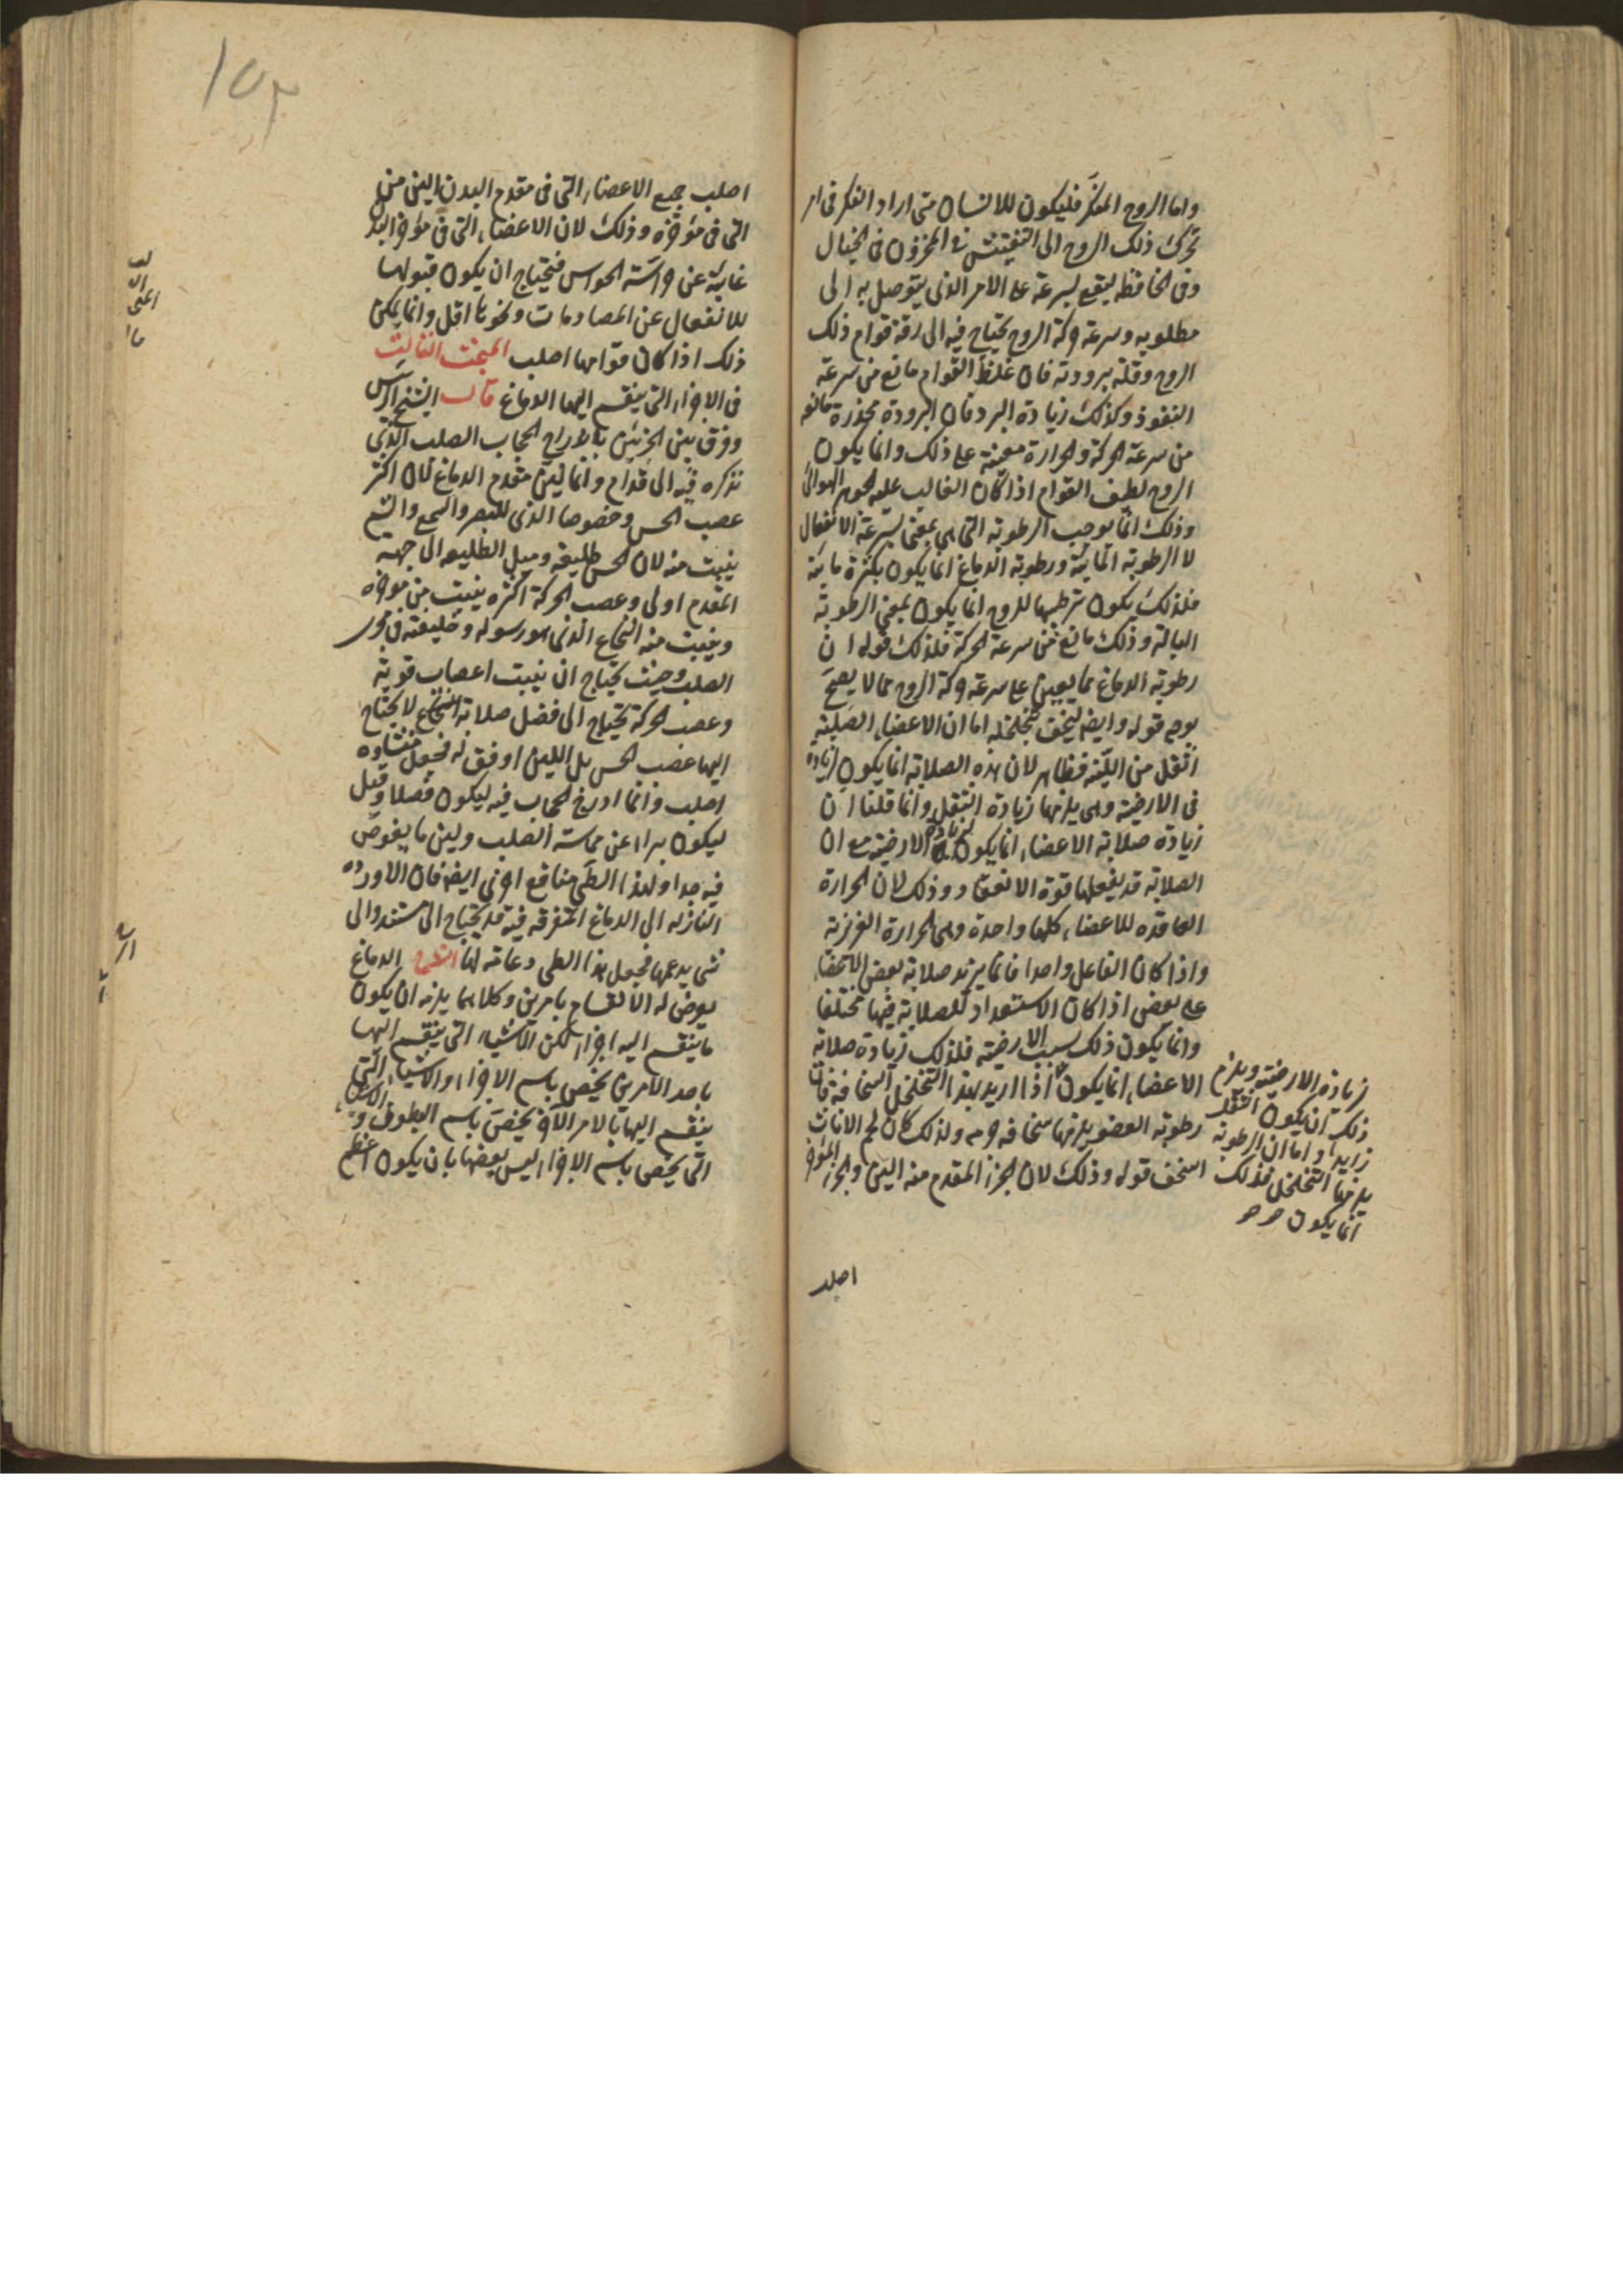 واما الروح المفكر فليكون للانسان متى اراد الفكر فى امر
تحرك ذلك الروح الى التفتيش فى المخزون فى الخيال
وفى الحافظه ليقع بسرعة على الامر الذى يتوصل به الى
مطلوبه وسرعة حركة الروح يحتاج فيه الى رقة قوام ذلك
الروح وقلة برودته فان غلظ القوام مانع من سرعة
النفوذ وكذلك زيادة البرد فان البرودة مخدرة مانعه
من سرعة الحركة والحرارة معينة على ذلك وانما يكون
الروح لطيف القوام اذا كان الغالب عليه الجوهر الهوائى
وذلك انما يوجب الرطوبة التى هى بمعنى سرعة الانفعال
لا الرطوبة المائية ورطوبة الدماغ انما يكون بكثرة مائية
فلذلك يكون ترطيبها للروح انما يكون بمعنى الرطوبة
البالة وذلك مانع من سرعة الحركة فلذلك قوله ان
رطوبة الدماغ مما يعين على سرعة حركة الروح مما لا يصح
قوله وايضا ليخف بتخلخله اما ان الاعضاء الصلبة
اثقل من اللينة فظاهر لان هذه الصلابة انما يكون لزيادة
فى الارضية وهى يلزمها زيادة الثقل وانما قلنا ان
زيادة صلابة الاعضاء انما يكون لزيادة الارضية مع ان
الصلابة قد يفعلها قوة الانعقاد وذلك لان الحرارة
العاقده للاعضاء كلها واحدة وهى الحرارة الغريزية
واذا كان الفاعل واحدا فانما يزيد صلابة بعض الاعضاء
على بعض اذا كان الاستعداد للصلابة فيها مختلفا
وانما يكون ذلك بسبب الارضية فلذلك زيادة صلابة
الاعضاء انما يكون اذا اريد بهذا التخلخل السخافة فان
رطوبة العضو يلزمها سخافه جرمه ولذلك كان لحم الاناث
اسخف قوله وذلك لان الجزء المقدم منه الين والجزء المؤخر
زيادة الارضية ويلزم
ذلك ان يكون الثقل
زايدا واما ان الرطوبة
يلزمها التخلخل فذلك
انما يكون
اصلب
١٥٣
اصلب جميع الاعضاء التى فى مقدم البدن الين من
التى فى مؤخره وذلك لان الاعضاء التى فى مؤخر البدن
غايبة عن حراسة الحواس فيحتاج ان يكون قبولها
للانفعال عن المصادمات ونحوها اقل وانما يمكن
ذلك اذا كان قوامها اصلب المبحث الثالث
فى الاجزاء التى ينقسم اليها الدماغ قال الشيخ الرئيس
وفرق بين الجزئين باندراج الحجاب الصلب الذى
نذكره فيه الى قدام وانما لين مقدم الدماغ لان اكثر
عصب الحس وخصوصا الذى للبصر والسمع والشم
ينبت منه لان الحس طليعة وميل الطليعه الى جهة
المقدم اولى وعصب الحركة اكثره ينبت من موخره
وينبت منه النخاع الذى هو رسوله وخليفته فى مجرى
الصلب وحيث يحتاج ان ينبت اعصاب قوية
وعصب الحركة يحتاج الى فضل صلابة لا يحتاج
اليها عصب الحس بل اللين اوفق له فجعل منشاوه
اصلب وانما ادرج الحجاب فيه ليكون فصلا وقيل
ليكون مبراء عن مماسة الصلب ولين ما يغوص
فيه جدا ولهذا الطى منافع اخرى ايضا فان الاورده
النازله الى الدماغ المتفرقه فيه قد يحتاج الى مستند والى
شى يدعمها فجعل هذا الطى دعامة لها الشرح الدماغ
يعرض له الانقسام بامرين وكلاهما يلزمه ان يكون
ما ينقسم اليه اجزاء لكن الاشياء التى ينقسم اليها
باحد الامرين يختص باسم الاجزاء والاشياء التى
ينقسم اليها بالامر الاخر يختص باسم البطون و
التى يختص باسم الاجزاء ليس بعضها بان يكون اعظم